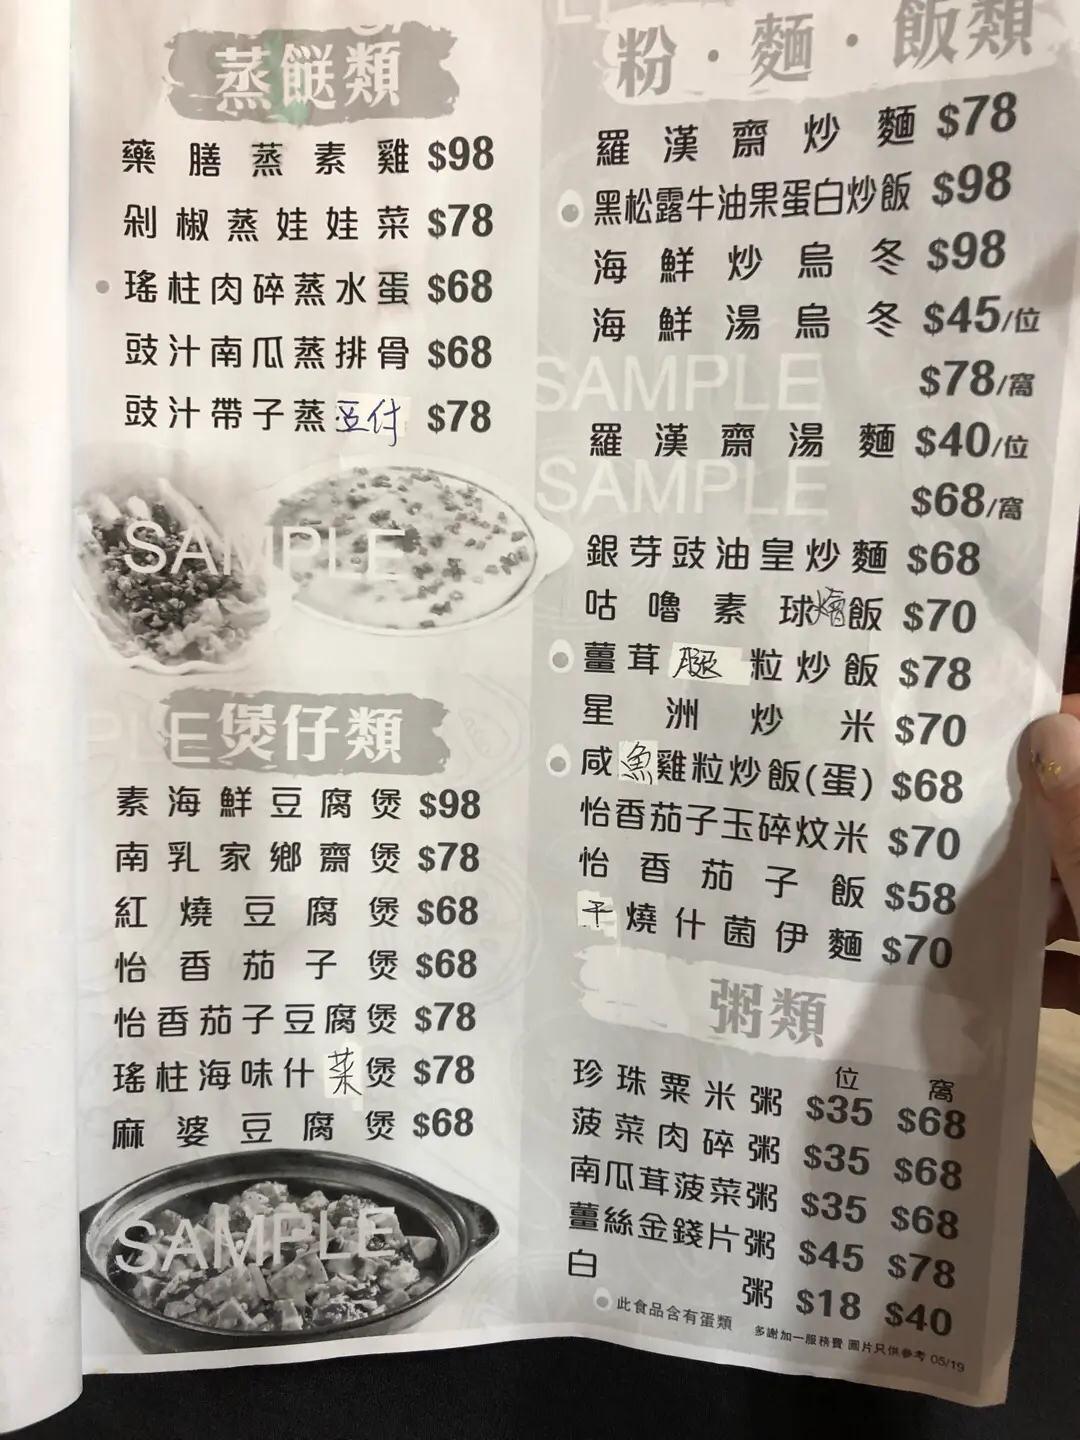 蒸餸類
藥膳蒸素雞 $98
剁椒蒸娃娃菜 $78
瑤柱肉碎蒸水蛋 $68
豉汁南瓜蒸排骨 $68
豉汁帶子蒸豆付 $78
SAMPLE
煲仔類
素海鮮豆腐煲 $98
南乳家鄉齋煲 $78
紅燒豆腐煲 $68
怡香茄子煲 $68
怡香茄子豆腐煲 $78
瑤柱海味什菜煲 $78
麻婆豆腐煲 $68
SAMPLE
粉·麵·飯類
羅漢齋炒麵 $78
黑松露牛油果蛋白炒飯 $98
海鮮炒烏冬 $98
海鮮湯烏冬 $45/位
$78/窩
SAMPLE
羅漢齋湯麵 $40/位
SAMPLE
$68/窩
銀芽豉油皇炒麵 $68
咕嚕素球燴飯 $70
薑茸腿粒炒飯 $78
星洲炒米 $70
咸魚雞粒炒飯(蛋) $68
怡香茄子玉碎炆米 $70
怡香茄子飯 $58
干燒什菌伊麵 $70
粥類
位 窩
珍珠粟米粥 $35 $68
菠菜肉碎粥 $35 $68
南瓜茸菠菜粥 $35 $68
薑絲金錢片粥 $45 $78
白粥 $18 $40
此食品含有蛋類
多謝加一服務費 圖片只供參考 05/19